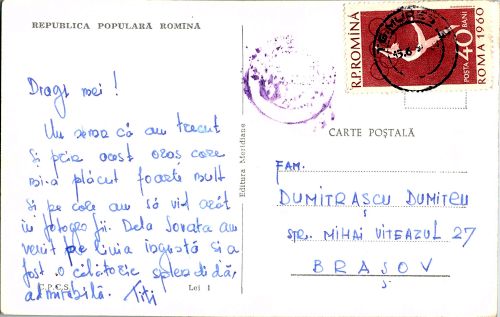 REPUBLICA POPULARĂ ROMÎNĂ
Dragi mei!
Un semn că am trecut
și prin acest oraș care
mi-a plăcut foarte mult
și pe care am să vi-l arăt
în fotografii. Dela Sovata am
venit pe linia îngustă și a
fost o călătorie splendidă,
admirabilă. Titi
C.P.C.S.
Lei 1
Editura Meridiane
R.P. ROMINA
POSTA 40 BANI
ROMA 1960
CARTE POȘTALĂ
FAM.
DUMITRAȘCU DUMITRU
STR. MIHAI VITEAZUL 27
BRAȘOV